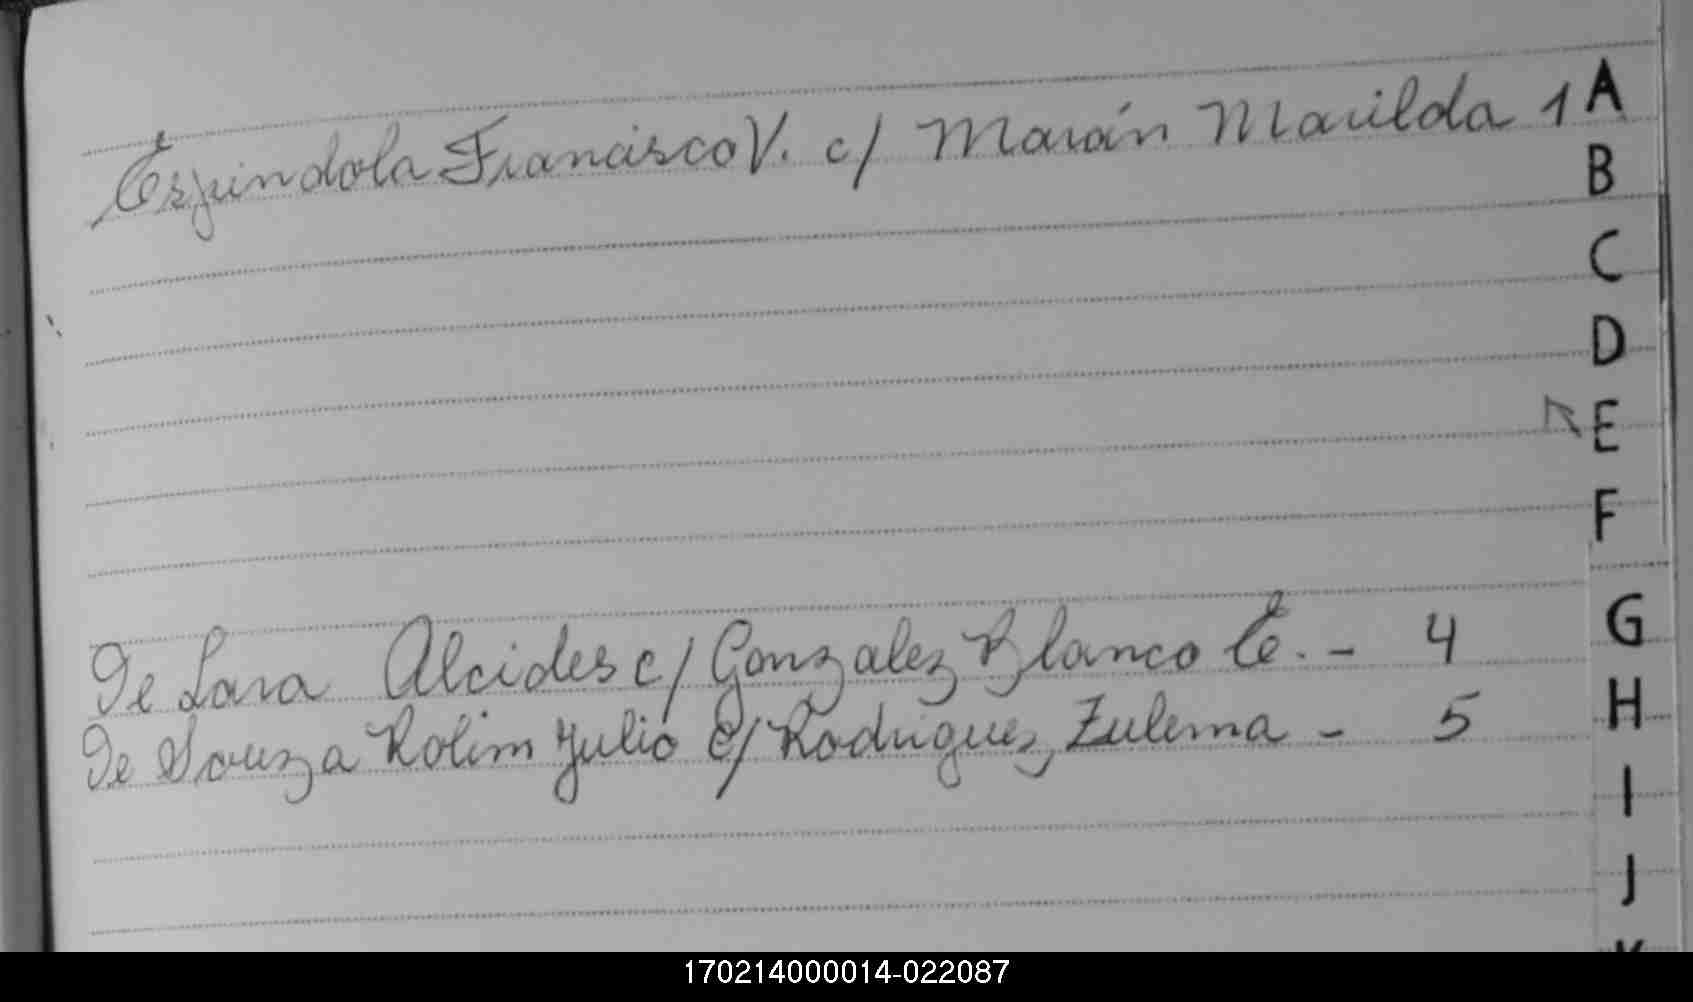 Espindola Francisco V. c/ Marán Marilda 1
A
B
C
D
E
F
De Lara Alcides c/ Gonzalez Blanco E. - 4
G
De Souza Rolim Julio c/ Rodriguez Zulema - 5
H
I
J
K
170214000014-022087